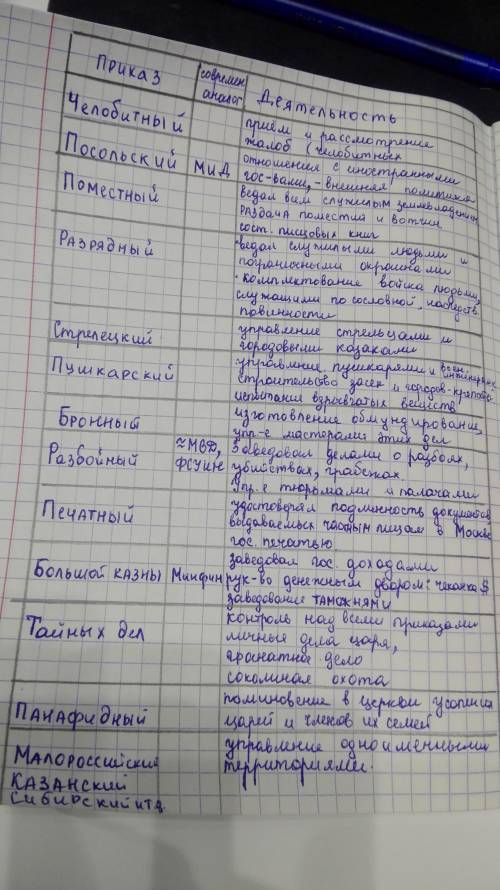 Приказ современ аналог Деятельность
Челобитный приём и рассмотрение
жалоб (челобитных
Посольский МИД отношения с иностранными
гос-вами, - внешняя политика
Поместный ведал всем служилым землевладением
раздача поместий и вотчин
сост. писцовых книг
Разрядный ведал служилыми людьми и
пограничными окраинами
• комплектование войска людьми,
служащими по сословной, наследств.
повинности
Стрелецкий управление стрельцами и
городовыми казаками
Пушкарский управление пушкарями и воен. инженерами
строительство засек и городов-крепостей
испытания взрывчатых веществ
Бронный изготовление обмундирования,
упр-е мастерами этих дел
Разбойный ≈МВД, ФСИН Заведовал делами о разбоях,
убийствах, грабежах.
Упр-е тюрьмами и палачами
Печатный удостоверял подлинность документов,
выдаваемых частным лицам в Москве
гос. печатью.
Большой казны Минфин заведовал гос. доходами
рук-во денежным двором: чеканка $
заведование таможнями
Тайных дел контроль над всеми приказами
личные дела царя,
гранатное дело
соколиная охота
Панафидный поминовение в церкви усопших
царей и членов их семей
Малороссийский управление одноименными
территориями.
Казанский
Сибирский итд